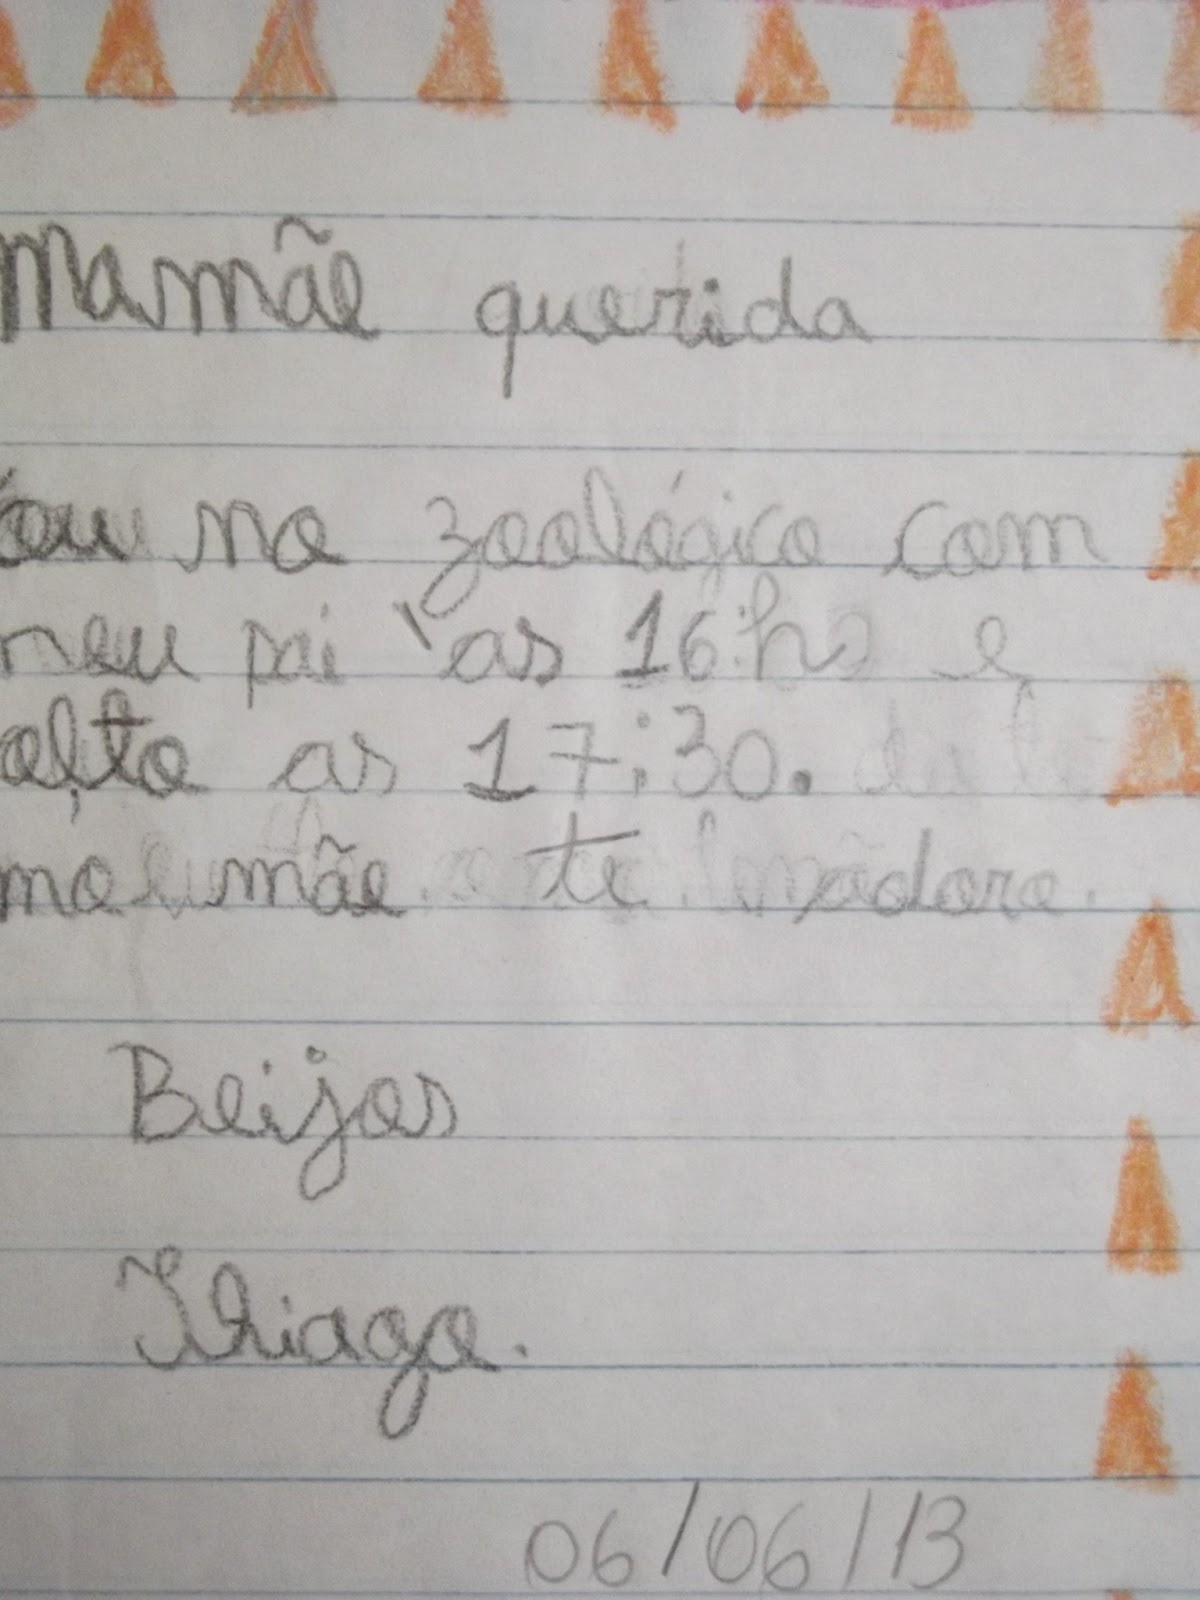 Mamãe querida
ou no zoológico com
meu pai às 16:hs e
olto as 17:30.
mo mãe. te adoro.
Beijos
Thiago.
06/06/13